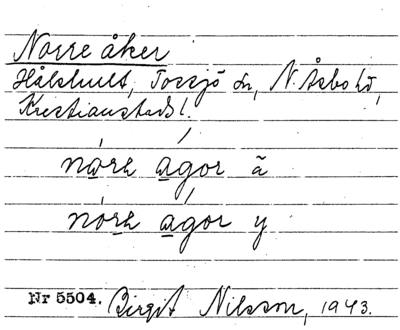 Norre åker
Hålshult, Tossjö sn, N. Åsbo hd,
Kristianstads l.
agor ã
agor y
Nr 5504. Birgit Nilsson, 1943.